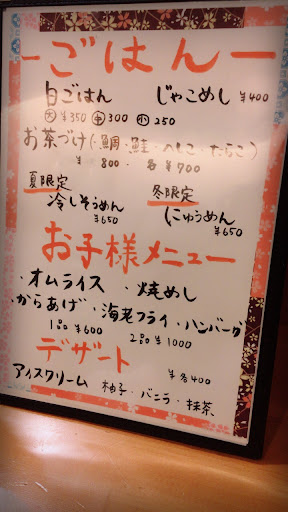 ーごはんー
白ごはん じゃこめし ¥400
大 ¥350 中 300 小 250
お茶づけ(・鯛・鮭・へしこ・たらこ)
¥ 800- 各¥700
夏限定 冬限定
冷しそうめん にゅうめん
¥650 ¥650
お子様メニュー
・オムライス ・焼めし
・からあげ・海老フライ・ハンバーグ
1品¥600 2品¥1000
デザート
アイスクリーム ¥各400
柚子・バニラ・抹茶